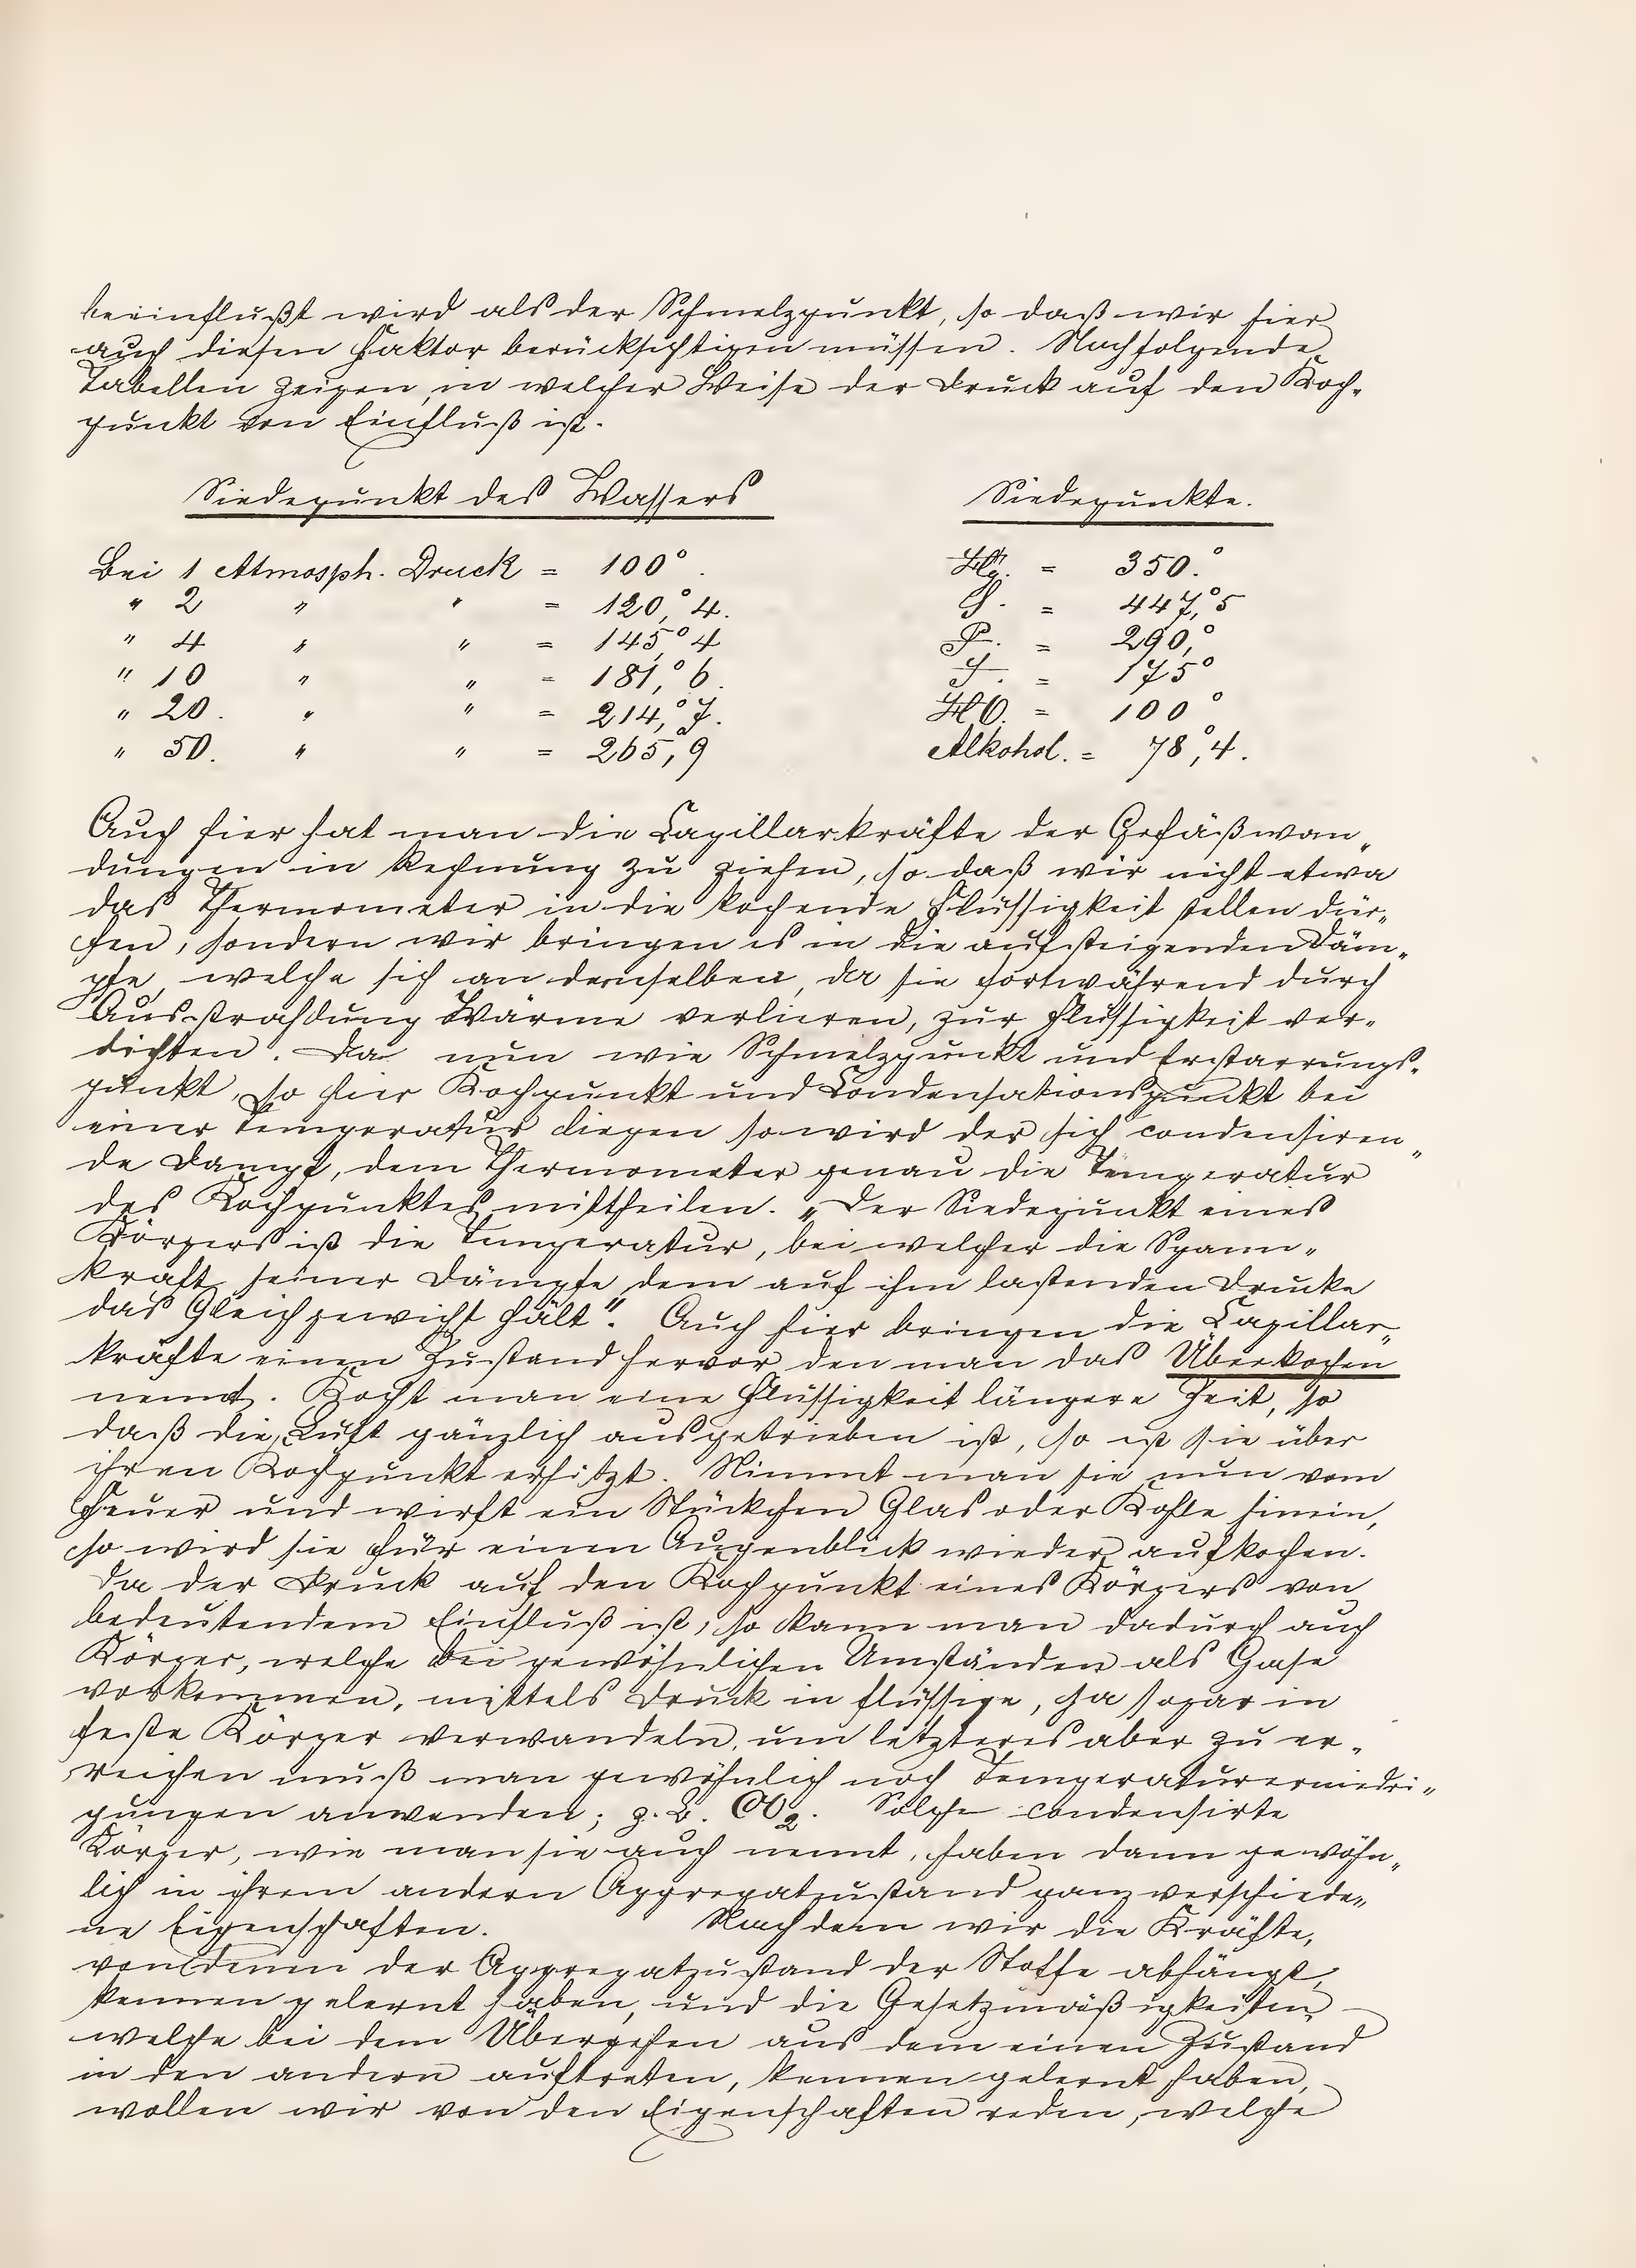 beeinflußt wird als der Schmelzpunkt, so daß wir hier
auch diesen Faktor berücksichtigen müssen. Nachfolgende
Tabellen zeigen, in welcher Weise der Druck auf den Koch-
punkt von Einfluß ist.
Siedepunkt des Wassers
Bei 1 Atmosph. Druck = 100°.
" 2 " " = 120,°4.
" 4 " " = 145,°4
" 10 " " = 181,°6.
" 20. " " = 214,°7.
" 50. " " = 265,°9
Siedepunkte.
Hg. = 350.°
S. = 447,°5
P. = 290,°
J. = 175°
HO. = 100°
Alkohol. = 78,°4.
Auch hier hat man die Capillarkräfte der Gefäßwan„
dungen in Rechnung zu ziehen, so daß wir nicht etwa
das Thermometer in die kochende Flüssigkeit stellen dür-
fen, sondern wir bringen es in die aufsteigenden Däm„
pfe, welche sich an demselben, da sie fortwährend durch
Ausstrahlung Wärme verlieren, zur Flüssigkeit ver-
dichten. Da nun wie Schmelzpunkt und Erstarrungs-
punkt, so hier Kochpunkt und Condensationspunkt bei
einer Temperatur liegen so wird der sich condensiren„
de Dampf, dem Thermometer genau die Temperatur
des Kochpunktes mittheilen. „Der Siedepunkt eines
Körpers ist die Temperatur, bei welcher die Spann„
kraft seiner Dämpfe dem auf ihm lastenden Drucke
das Gleichgewicht hält". Auch hier bringen die Capillar„
kräfte einen Zustand hervor den man das Überkochen
nennt. Kocht man eine Flüssigkeit längere Zeit, so
daß die Luft gänzlich ausgetrieben ist, so ist sie über
ihren Kochpunkt erhitzt. Nimmt man sie nun vom
Feuer und wirft ein Stückchen Glas oder Kohle hinein,
so wird sie für einen Augenblick wieder aufkochen.
Da der Druck auf den Kochpunkt eines Körpers von
bedeutendem Einfluß ist, so kann man dadurch auch
Körper, welche bei gewöhnlichen Umständen als Gase
vorkommen, mittels Druck in flüssige, ja sogar in
feste Körper verwandeln, um letzteres aber zu er-
reichen muß man gewöhnlich noch Temperaturerniedri„
gungen anwenden; z. B. CO2. Solche condensirte
Körper, wie man sie auch nennt, haben dann gewöhn„
lich in ihrem andern Aggregatzustand ganz verschiede„
ne Eigenschaften. Nachdem wir die Kräfte,
von denen der Aggregatzustand der Stoffe abhängt,
kennen gelernt haben, und die Gesetzmäßigkeiten
welche bei dem Übergehen aus dem einen Zustand
in den andern auftreten, kennen gelernt haben,
wollen wir von den Eigenschaften reden, welche